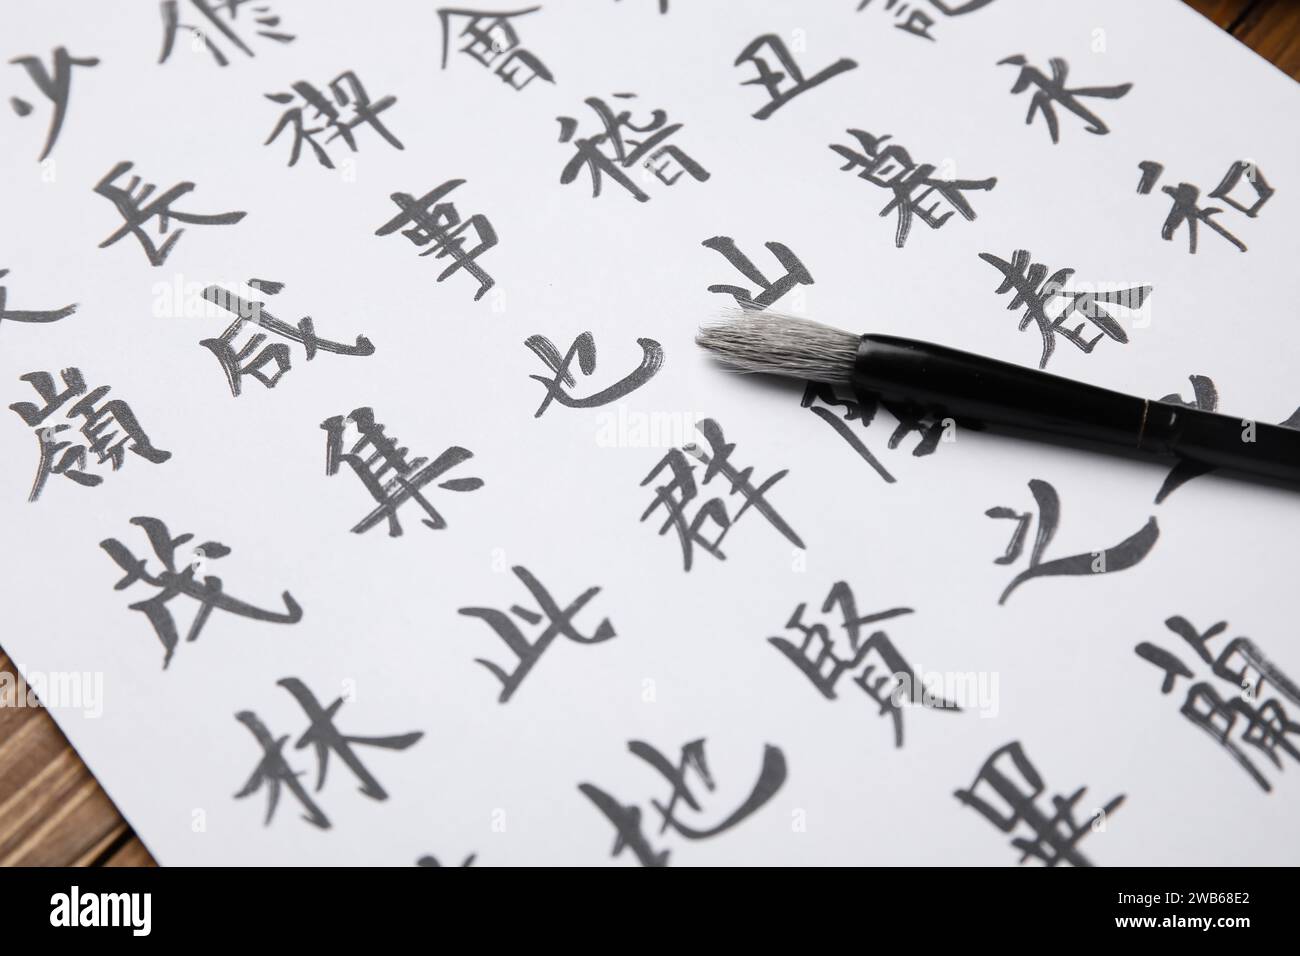 記永和
丑暮春
會稽山之蘭
修禊事也群賢畢
少長咸集此地
嶺茂林
alamy
Image ID: 2WB68E2
www.alamy.com